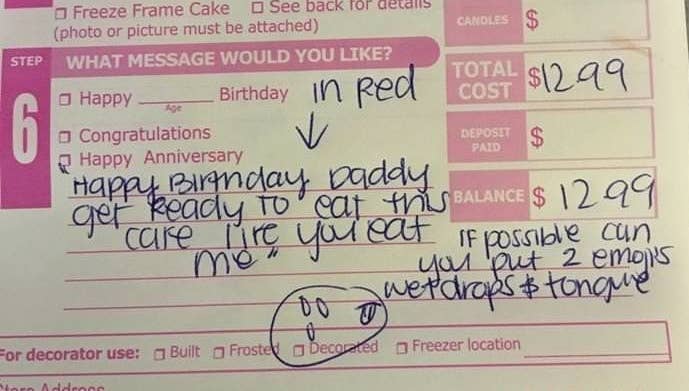 Freeze Frame Cake See back for details
(photo or picture must be attached)
CANDLES $
STEP 6
WHAT MESSAGE WOULD YOU LIKE?
Happy ______ Birthday in Red
Age
TOTAL COST $12.99
Congratulations
DEPOSIT PAID $
Happy Anniversary
"Happy Birthday Daddy
get Ready To eat this
cake like you eat
me"
BALANCE $ 12.99
If possible can
you put 2 emojis
wetdrops & tongue
For decorator use: Built Frosted Decorated Freezer location
Store Address